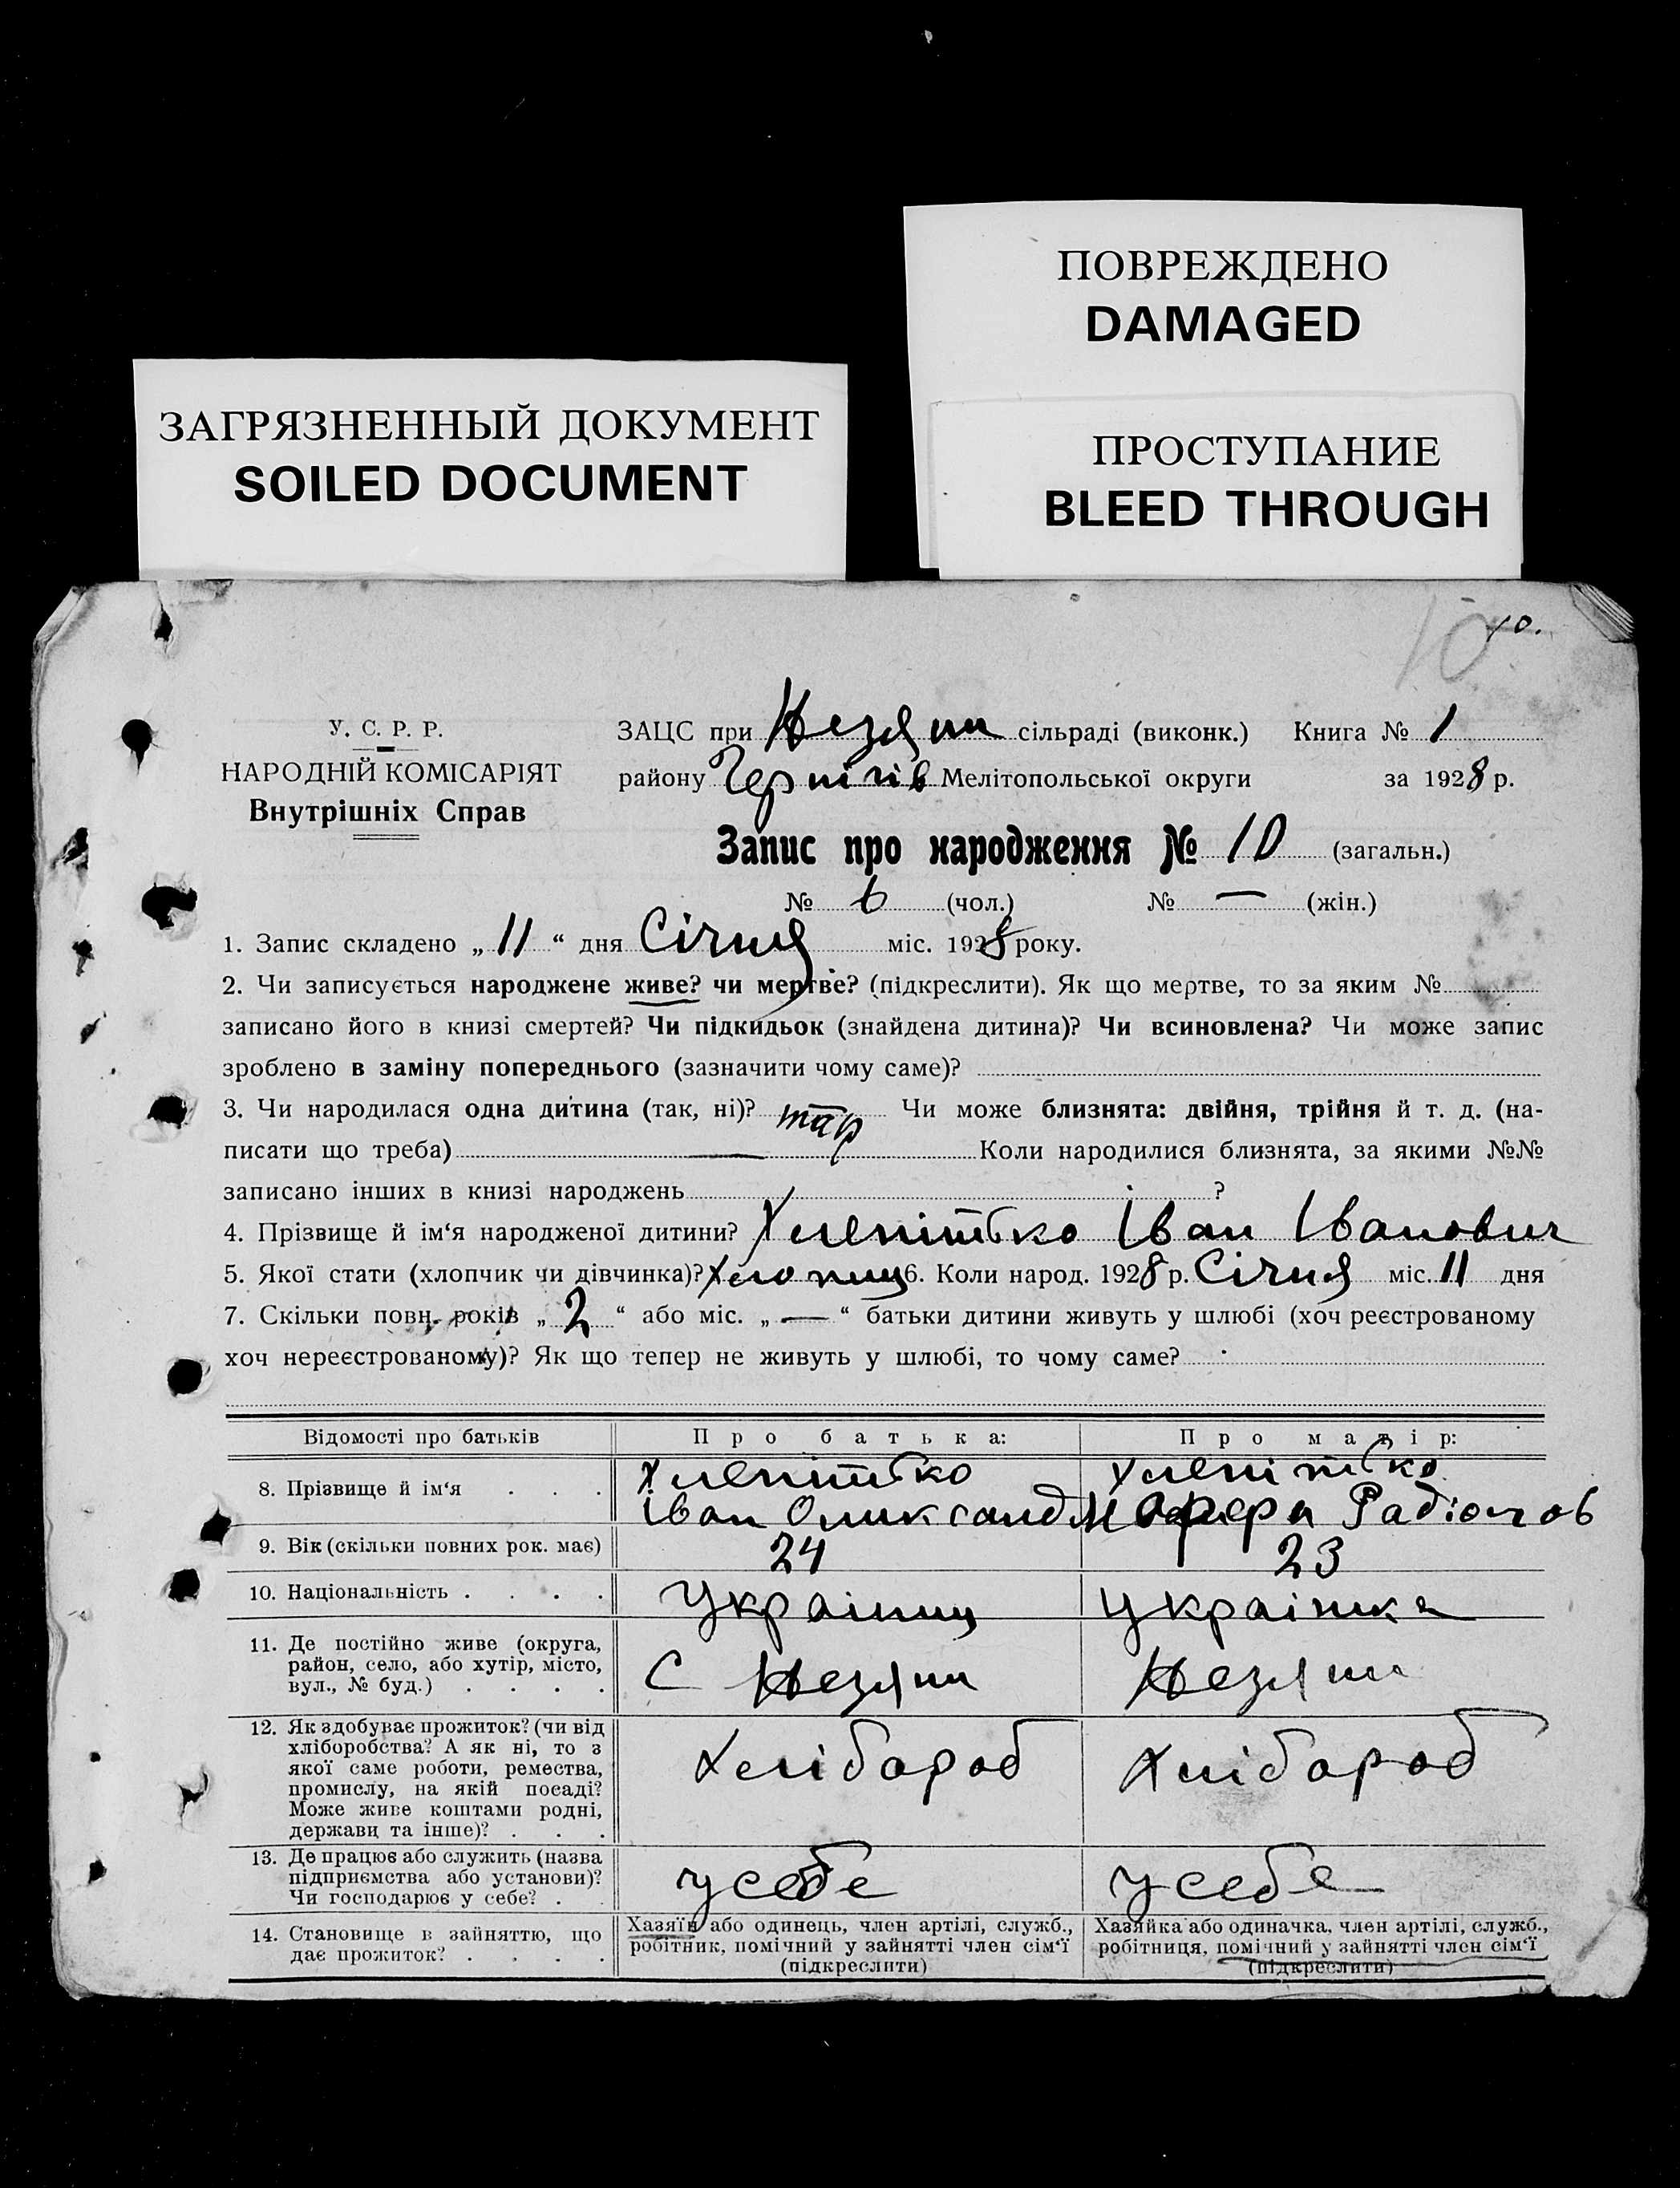 ПОВРЕЖДЕНО
DAMAGED
ЗАГРЯЗНЕННЫЙ ДОКУМЕНТ
SOILED DOCUMENT
ПРОСТУПАНИЕ
BLEED THROUGH
10 10.
У. С. Р. Р.
НАРОДНІЙ КОМІСАРІЯТ
Внутрішніх Справ
ЗАЦС при сільраді (виконк.) Книга № 1
району Чернігів Мелітопольської округи за 1928 р.
Запис про народження № 10 (загальн.)
№ 6 (чол.) № — (жін.)
1. Запис складено „ 11 “ дня Січня міс. 1928 року.
2. Чи записується народжене живе? чи мертве? (підкреслити). Як що мертве, то за яким №
записано його в книзі смертей? Чи підкидьок (знайдена дитина)? Чи всиновлена? Чи може запис
зроблено в заміну попереднього (зазначити чому саме)?
3. Чи народилася одна дитина (так, ні)? так Чи може близнята: двійня, трійня й т. д. (на-
писати що треба) — Коли народилися близнята, за якими №№
записано інших в книзі народжень ?
4. Прізвище й ім‘я народженої дитини? Іван Іванович
5. Якої стати (хлопчик чи дівчинка)? хлопец 6. Коли народ. 1928 р. Січня міс. 11 дня
7. Скільки повн. років „ 2 “ або міс. „ — “ батьки дитини живуть у шлюбі (хоч реєстрованому
хоч нереєстрованому)? Як що тепер не живуть у шлюбі, то чому саме?
Відомості про батьків Про батька: Про матір:
8. Прізвище й ім‘я . . .
Іван Олександ
9. Вік (скільки повних рок. має) 24 23
10. Національність . . . . Українец Українка
11. Де постійно живе (округа,
район, село, або хутір, місто,
вул., № буд.) . . . . С
12. Як здобуває прожиток? (чи від
хліборобства? А як ні, то з
якої саме роботи, ремества,
промислу, на якій посаді?
Може живе коштами родні,
держави та інше)? . . . Хлібароб Хлібароб
13. Де працює або служить (назва
підприємства або установи)?
Чи господарює у себе? . усебе усебе
14. Становище в зайняттю, що
дає прожиток? . . . .
Хазяїн або одинець, член артілі, служб.,
робітник, помічний у зайнятті член сім‘ї
(підкреслити)
Хазяйка або одиначка, член артілі, служб.,
робітниця, помічний у зайнятті член сім‘ї
(підкреслити)